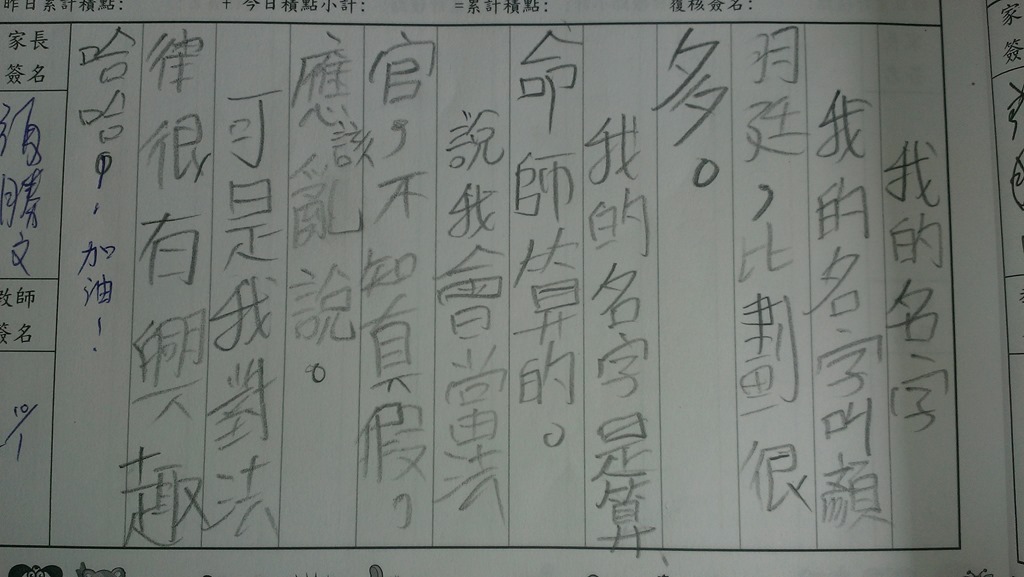 昨日累計積點:
+ 今日積點小計:
=累計積點:
複核簽名:
我的名字
我的名字叫顏
羽廷,比劃很
多。
我的名字是算
命師算的。
說我會當法
官,不知真假,
應該亂說。
可是我對法
律很有興趣
哈哈!
加油!
家長
簽名
教師
簽名
10/1
家
簽